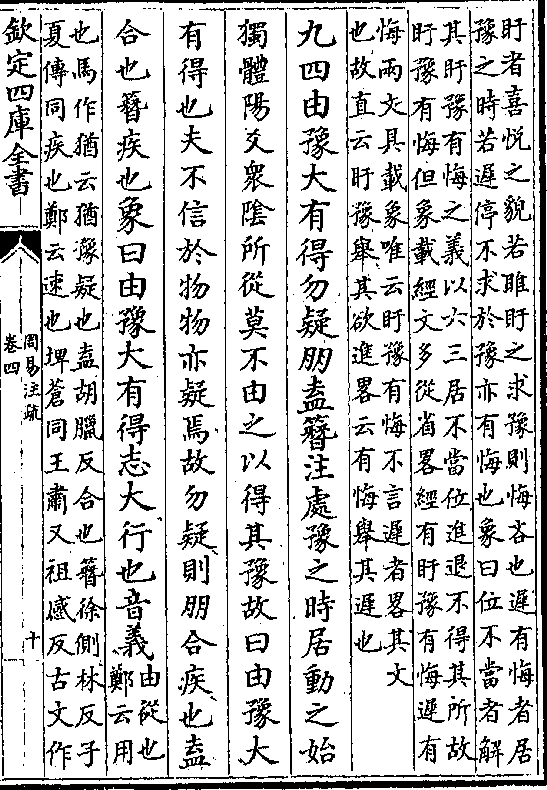 盱者喜悦之貌若睢盱之求豫則悔吝也遲有悔者居
豫之時若遲停不求於豫亦有悔也象曰位不當者解
其盱豫有悔之義以六三居不當位進退不得其所故
盱豫有悔但象載經文多從省畧經有盱豫有悔遲有
悔兩文具載象唯云盱豫有悔不言遲者畧其文
也故直云盱豫舉其欲進畧云有悔舉其遲也
九四由豫大有得勿疑朋盍簪注處豫之時居動之始
獨體陽爻衆陰所從莫不由之以得其豫故曰由豫大
有得也夫不信於物物亦疑焉故勿疑則朋合疾也盍
合也簪疾也象曰由豫大有得志大行也音義
由從也
鄭云用
也馬作猶云猶豫疑也盍胡臘反合也簪徐側林反子
夏傳同疾也鄭云速也埤蒼同王肅又祖感反古文作
欽定四庫全書
周易注疏
卷四
十